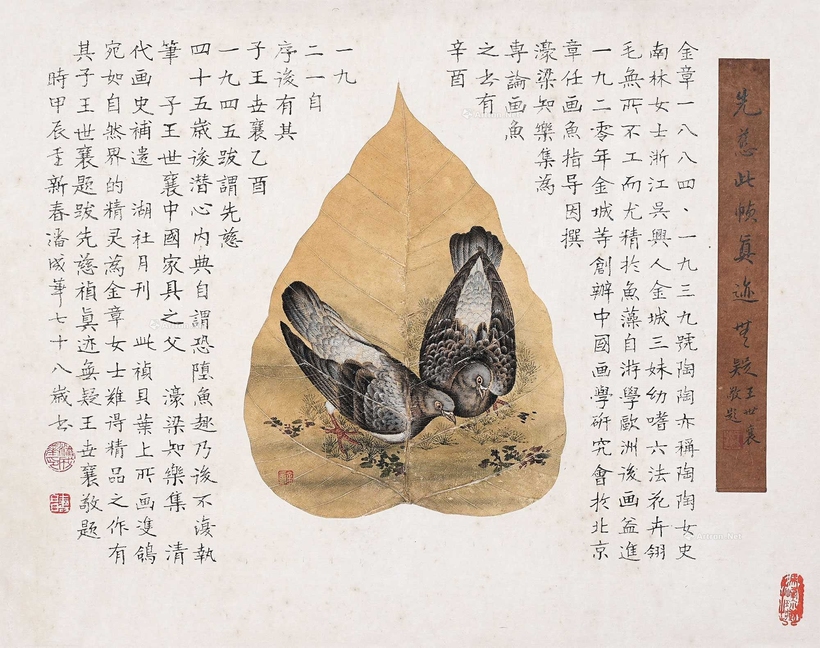 先慈此幀真迹無疑 王世襄
敬題
金章一八八四、一九三九號陶陶亦稱陶陶女史
南林女士浙江吳興人金城三妹幼嗜六法花卉翎
毛無所不工而尤精於魚藻自游學歐洲後画益進
一九二零年金城等創辦中國画學研究會於北京
章任画魚指导因撰
濠梁知樂集為
専論画魚
之书有
辛酉
一九
二一自
序後有其
子王世襄乙酉
一九四五跋謂先慈
四十五歲後潜心內典自謂恐墮魚趣乃後不復執
筆 子王世襄中國家具之父 濠梁知樂集 清
代画史補遺 湖社月刊 此禎貝葉上所画雙鴿
宛如自然界的精灵為金章女士難得精品之作有
其子王世襄題跋先慈禎真迹無疑王世襄敬題
時甲辰年新春潘成華七十八歲书